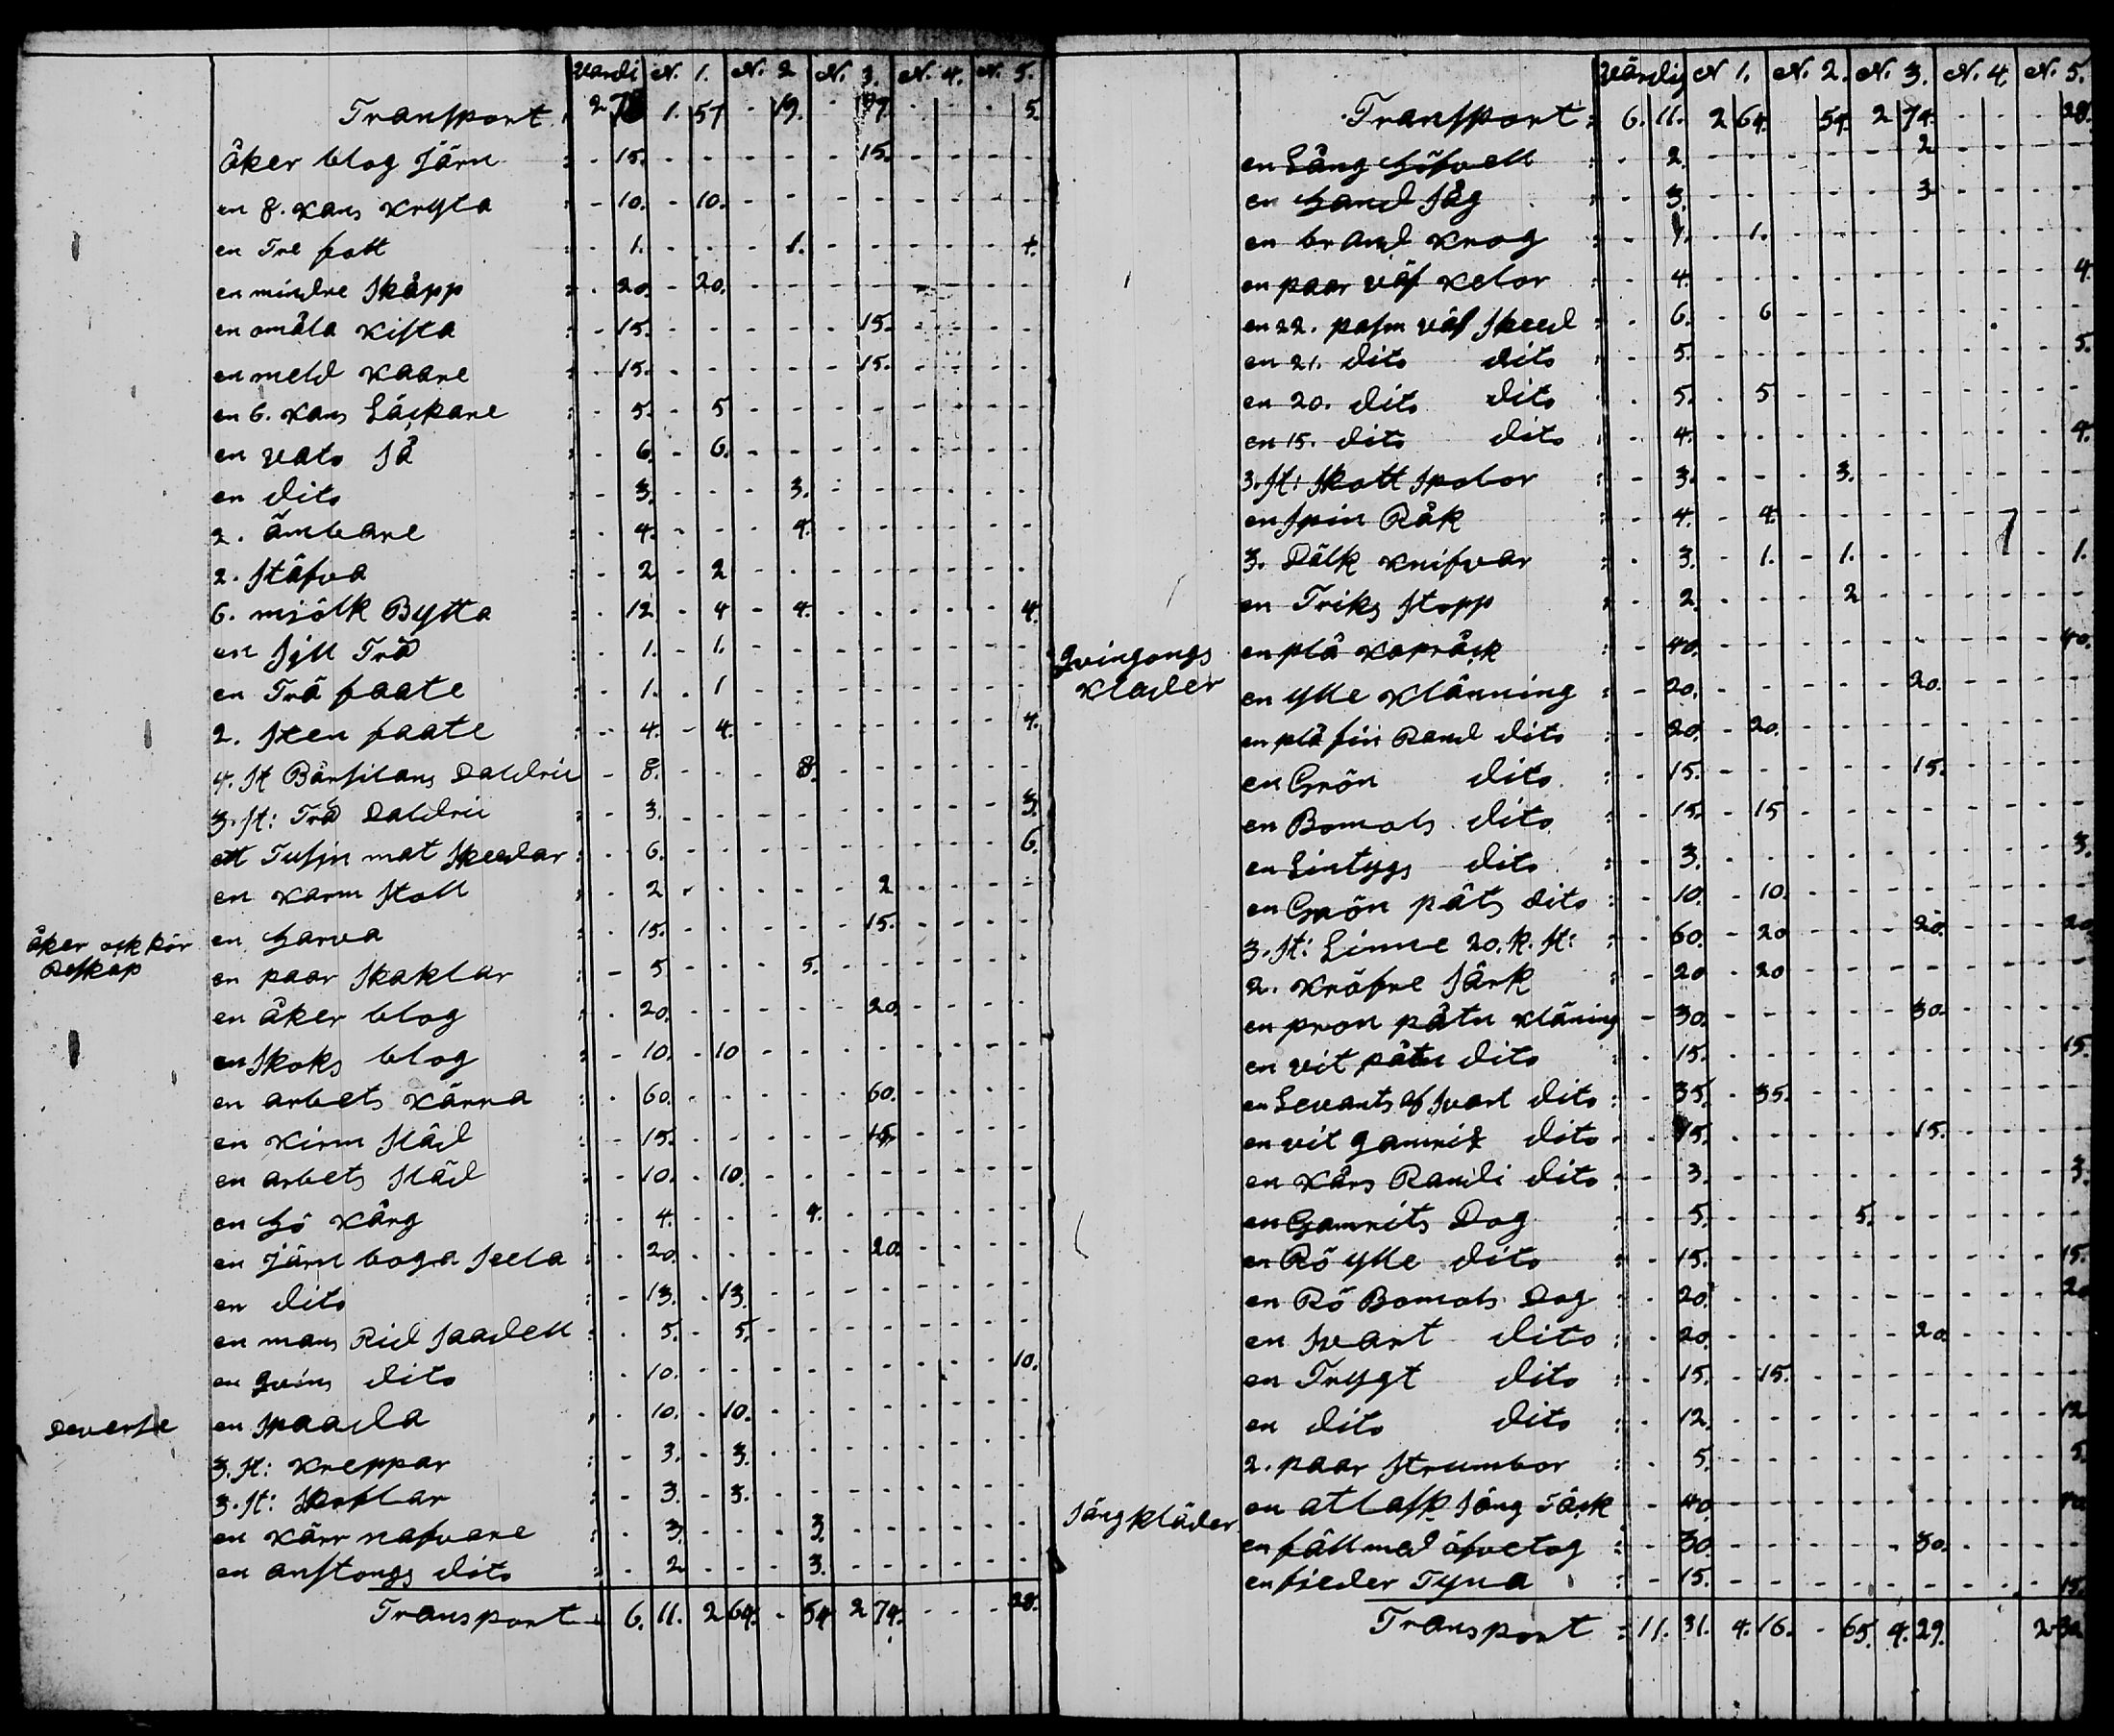 värdi N. 1. N. 2 N. 3. N. 4. N. 5.
Transport: 2 78 1. 57 - 19. - 77. - - - 5.
åker blog järn : - 15. - - - - - 15. - - - -
en 8. kans kryta : - 10. - 10. - - - - - - - -
en Tre fatt : - 1. - - - 1. - - - - - +.
en mindre skåpp : - 20. - 20. - - - - - - - -
en omåla kista : - 15. - - - - - 15. - - - -
en meld kaare : - 15. - - - - - 15. - - - -
en 6. kans Läskare : - 5. - 5 - - - - - - - -
en vats så : - 6. - 6. - - - - - - - -
en dito : - 3. - - - 3. - - - - - -
2. ämbare : - 4. - - - 4. - - - - - -
2. stäfva : - 2 - 2 - - - - - - - -
6. mjölk Bytta : - 12 - 4 - 4. - - - - - 4.
en sjll Trå : - 1. - 1. - - - - - - - -
en Trä faate : - 1. - 1 - - - - - - - -
2. sten faate : - 4. - 4. - - - - - - - 4.
4. st Bärsilans Daldrii - 8. - - - 8. - - - - - -
3. st: Trä Daldrii : - 3. - - - - - - - - - 3.
ett Tusjn mat skedar : - 6. - - - - - - - - - 6.
en karm stoll : - 2 - - - - - 2 - - - -
åker ock kör
Reskap
en harva : - 15. - - - - - 15. - - - -
en paar skaklar : - 5 - - - 5. - - - - - -
en åker blog : - 20. - - - - - 20. - - - -
en skoks blog : - 10. - 10 - - - - - - - -
en arbets kärra : - 60. - - - - - 60. - - - -
en kirm släd : - 15. - - - - - 15. - - - -
en arbets släd : - 10. - 10. - - - - - - - -
en hö kärg : - 4. - - - 4. - - - - - -
en järn boga seela : - 20. - - - - - 20. - - - -
en dito : - 13. - 13. - - - - - - - -
en mans Rid saadell : - 5. - 5. - - - - - - - -
en qvins dito : - 10. - - - - - - - - - 10.
Deverse
en spaada : - 10. - 10. - - - - - - - -
3. st: kreppar : - 3. - 3. - - - - - - - -
3. st: skoflar : - 3. - 3. - - - - - - - -
en kärr nafvare : - 3. - - - 3. - - - - - -
en anstongs dito : - 2 - - - 3. - - - - - -
Transport 6. 11. 2 64. - 54 2 74. - - - 28.
Värdig N 1. N. 2. N. 3. N. 4. N. 5.
Transport: 6. 11. 2 64. 54. 2 74. - - - 28.
en Lång höfvell : - 2. - - - - - 2 - - - -
en hand såg : - 3. - - - - - 3 - - - -
en brand krog : - 1. - 1. - - - - - - - -
en paar väf kelor : - 4. - - - - - - - - - 4.
en 22. pasm väf skeed : - 6. - 6 - - - - - - - -
en 21. dito dito : - 5. - - - - - - - - - 5.
en 20. dito dito : - 5. - 5 - - - - - - - -
en 15. dito dito : - 4. - - - - - - - - - 4.
3. st: skott spolor : - 3. - - - 3. - - - - - -
en spin Råk : - 4. - 4. - - - - - - - -
3. Dälk knifvar : - 3. - 1. - 1. - - - - - 1.
en Triks stopp : - 2. - - - 2 - - - - - -
qvingongs
klader
en plå kapråck : - 40. - - - - - - - - - 40.
en ylle klänning : - 20. - - - - - 20. - - - -
en plå fin Rand dito : - 20. - 20. - - - - - - - -
en Grön dito : - 15. - - - - - 15. - - - -
en Bomols dito : - 15. - 15 - - - - - - - -
en Lintygs dito : - 3. - - - - - - - - - 3.
en Grön påts dito : - 10. - 10. - - - - - - - -
3. st: Linne 20. k. st: : - 60. - 20 - - - 20. - - - 20
2. kröfre särk : - 20 - 20 - - - - - - - -
en pron påtn kläning - 30. - - - - - 30. - - - -
en vit påtn dito : - 15. - - - - - - - - - 15.
en Levants af svart dito : - 35. - 35. - - - - - - - -
en vit gamrit dito - 15. - - - - - 15. - - - -
en kårs Randi dito : - 3. - - - - - - - - - 3.
en Gamrits Dog : - 5. - - - 5. - - - - - -
en Rö ylle dito : - 15. - - - - - - - - - 15.
en Rö Bomols Dog : - 20. - - - - - - - - - 20
en svart dito : - 20. - - - - - 20. - - - -
en Trygt dito : - 15. - 15. - - - - - - - -
en dito dito : - 12. - - - - - - - - - 12
2. paar strumbor : - 5. - - - - - - - - - 5.
sängkläder
en atlask säng Täck - 40. - - - - - - - - - 40
en fäll med öfvetog : - 30. - - - - - 30. - - - -
en fjeder Tyna : - 15. - - - - - - - - - 15.
Transport : 11. 31. 4. 16. - 65. 4. 29. 2-30.